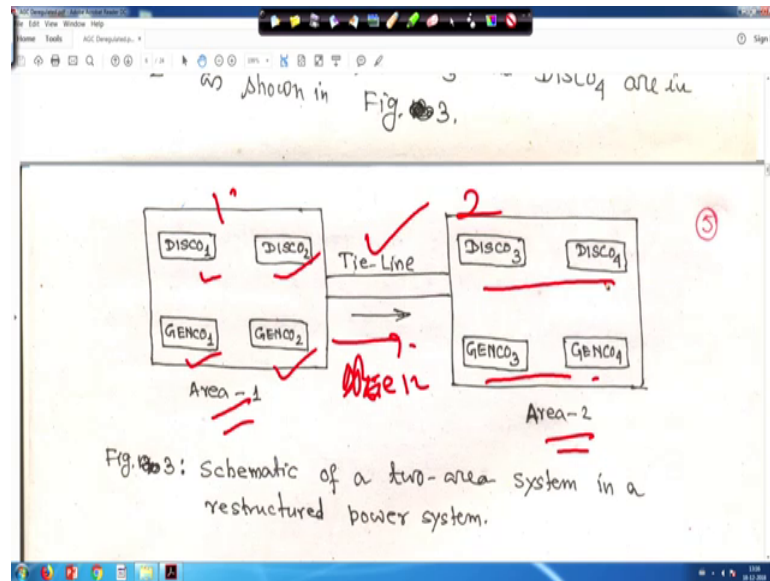 AGC Deregulated.pdf - Adobe Acrobat Reader DC
File Edit View Window Help
Home Tools AGC Deregulated.p... × Sign
as shown in 3 DISCO4 are in
Fig. 3.
1 2 5
DISCO1 DISCO2 Tie-Line DISCO3 DISCO4
GENCO1 GENCO2 GENCO3 GENCO4
Area-1 Area-2
Fig. 3: Schematic of a two-area system in a
restructured power system.